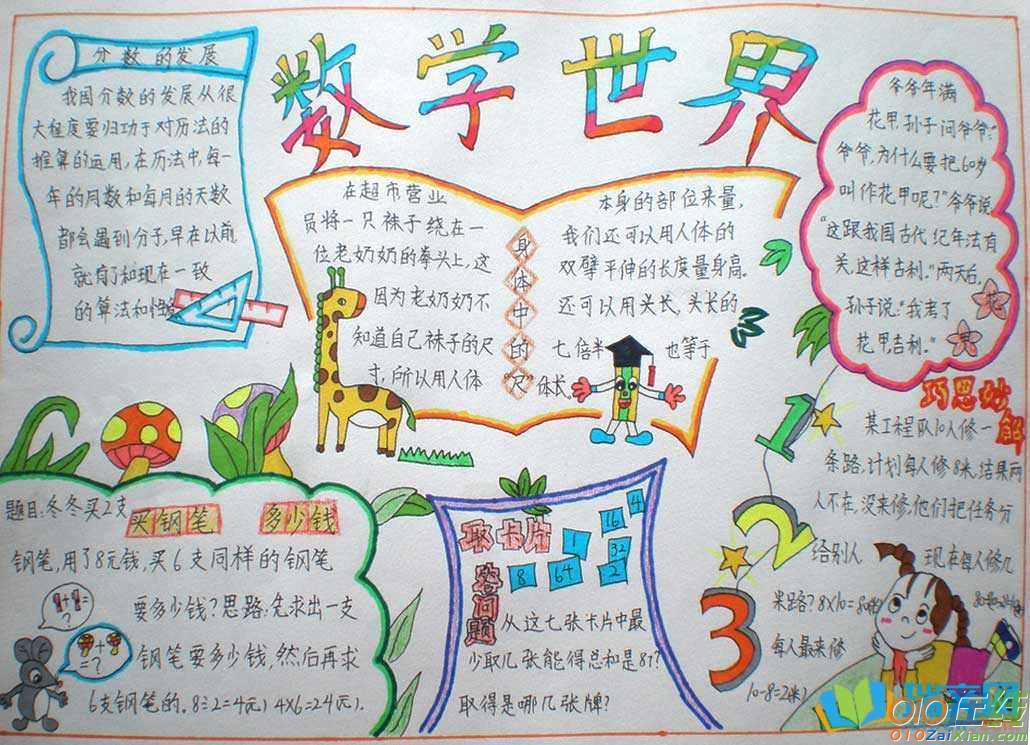 数学世界
分数的发展
我国分数的发展从很
大程度要归功于对历法的
推算的运用,在历法中,每一
年的月数和每月的天数
都会遇到分子,早在以前
就有了和现在一致
的算法和
在超市营业
员将一只袜子绕在一
位老奶奶的拳头上,这
因为老奶奶不
知道自己袜子的尺
寸,所以用人体
身体中的“尺”
本身的部位来量,
我们还可以用人体的
双臂平伸的长度量身高。
还可以用头长,头长的
七倍半 也等于
体长。
爷爷年满
花甲,孙子问爷爷:“
爷爷,为什么要把60岁
叫作花甲呢?”爷爷说
“这跟我国古代纪年法有
关,这样吉利。”两天后,
孙子说:“我考了
花甲,吉利。”
花
甲
巧思妙解
某工程队10人修一
条路,计划每人修8米,结果两
人不在,没来修,他们把任务分
给别人 现在每人修几
米路?8×10=80
每人最来修
10-8=2
1
2
3
买钢笔 多少钱
题目:冬冬买2支
钢笔,用了8元钱,买6支同样的钢笔
要多少钱?思路:先求出一支
钢笔要多少钱,然后再求
6支钢笔的。8÷2=4元) 4×6=24元).
+ =
?
+
=?
取卡片
答问题
1 16 4
8 64 32
2
从这七张卡片中最
少取几张能得总和是87?
取得是哪几张牌?
010在线
010ZaiXian.com